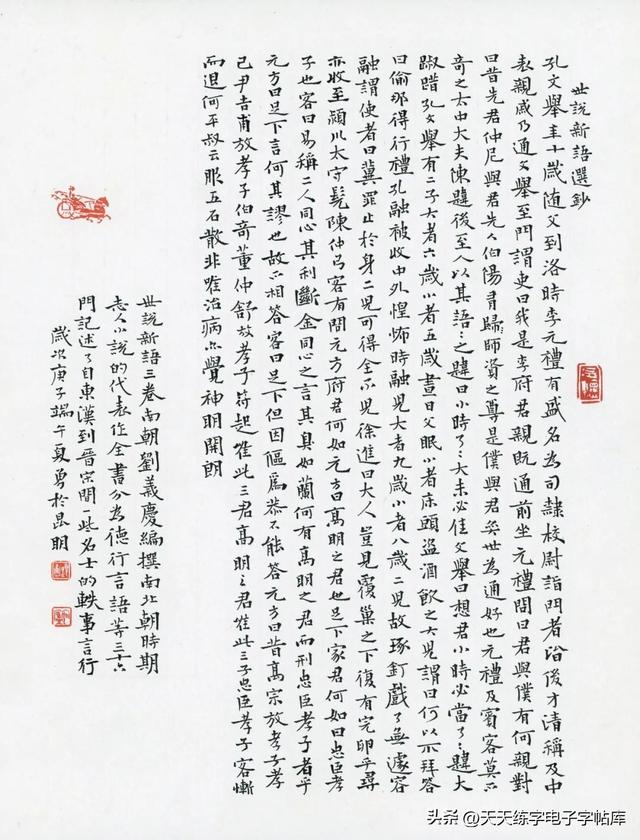 世說新語選鈔
孔文舉年十歲随父到洛時李元禮有盛名為司隷校尉詣門者皆俊才清稱及中
表親戚乃通文舉至門謂吏曰我是李府君親既通前坐元禮問曰君與僕有何親對
曰昔先君仲尼與君先人伯陽有歸師資之尊是僕與君奕世為通好也元禮及賓客莫不
奇之太中大夫陳韙後至人以其語之韙曰小時了:大未必佳文舉曰想君小時必當了:韙大
踧踖孔文舉有二子大者六歲小者五歲晝日父眠小者床頭盜酒飲之大兒謂曰何以不拜答
曰偷那得行禮孔融被收中外惶怖時融兒大者九歲小者八歲二兒故琢釘戲了無遽容
融謂使者曰冀罪止於身二兒可得全不兒徐進曰大人豈見覆巢之下復有完卵乎尋
亦收至潁川太守髡陳仲弓客有問元方府君何如元方曰高明之君也足下家君何如曰忠臣孝
子也客曰易稱二人同心其利斷金同心之言其臭如蘭何有高明之君而刑忠臣孝子者乎
元方曰足下言何其謬也故不相答客曰足下但因傴為恭不能答元方曰昔高宗放孝子孝
己尹吉甫放孝子伯奇董仲舒放孝子符起唯此三君高明之君唯此三子忠臣孝子客慚
而退何平叔云服五石散非唯治病亦覺神明開朗
世說新語三卷南朝劉義慶編撰南北朝時期
志人小說的代表作全書分為德行言語等三十六
門記述了自東漢到晉宋間一些名士的軼事言行
歲次庚子端午夏勇於昆明
头条 @天天练字电子字帖库